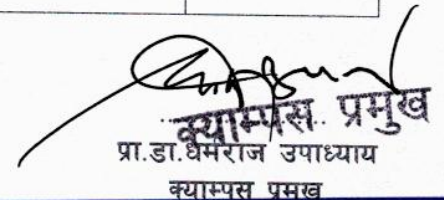 क्याम्पस प्रमुख
प्रा.डा.धर्मराज उपाध्याय
क्याम्पस प्रमुख